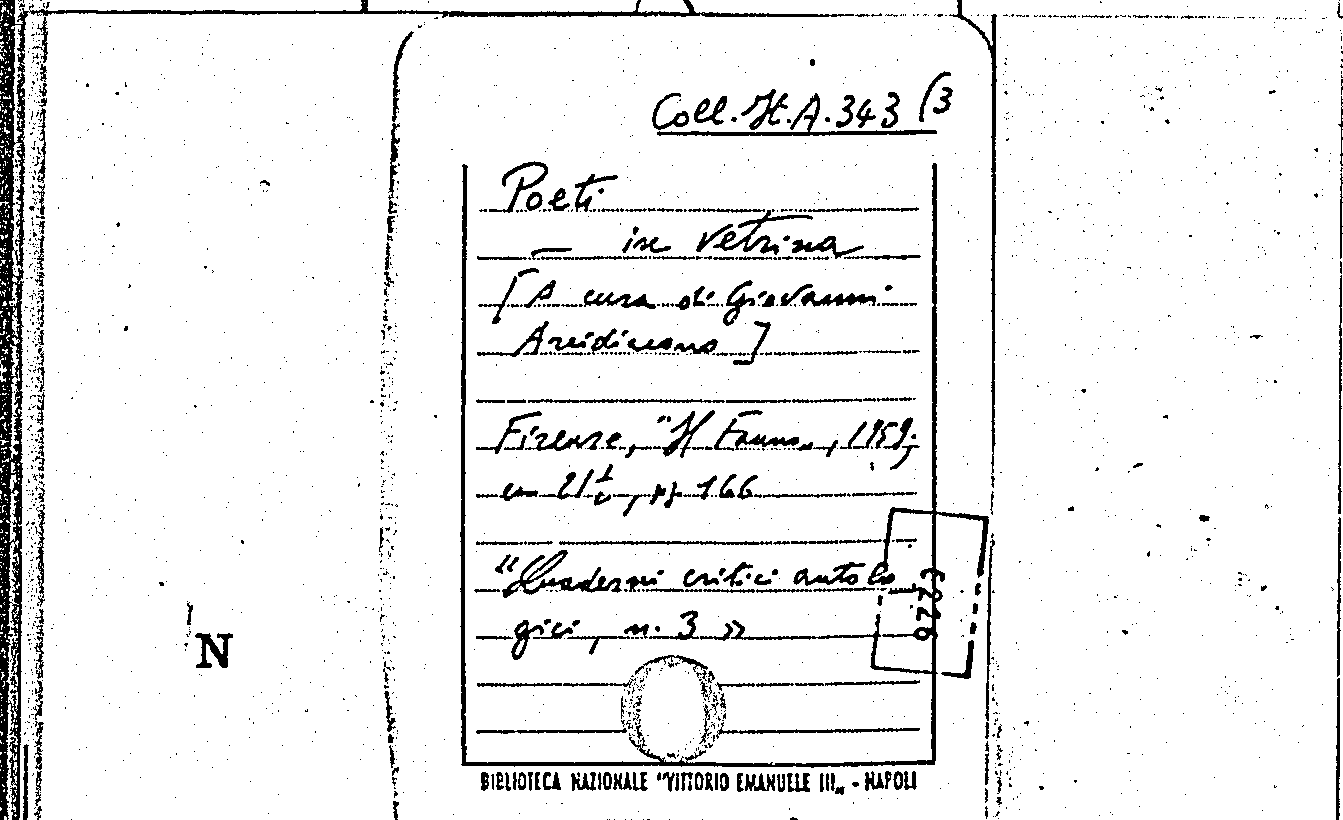 Coll. H.A. 343 (3
Poeti
— in vetrina
[A cura di Giovanni
Arcidiacono]
Firenze, "Il Fauno", 1959;
cm 21½, pp. 166
"Quaderni critici antolo
gici, n. 3 »
N
BIBLIOTECA NAZIONALE "VITTORIO EMANUELE III„ - NAPOLI